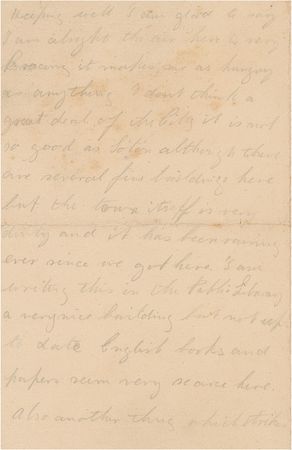 Keeping well I am glad to say
I am alright the air here is very
bracing it makes me as hungry
as anything I don't think a
great deal of the City it is not
so good as although there
are several fine buildings here
but the town itself is very
dirty and it has been raining
ever since we got here. I am
writing this in the Public Library
a very nice building but not up
to date English books and
papers seem very scarce here.
Also another thing which strikes